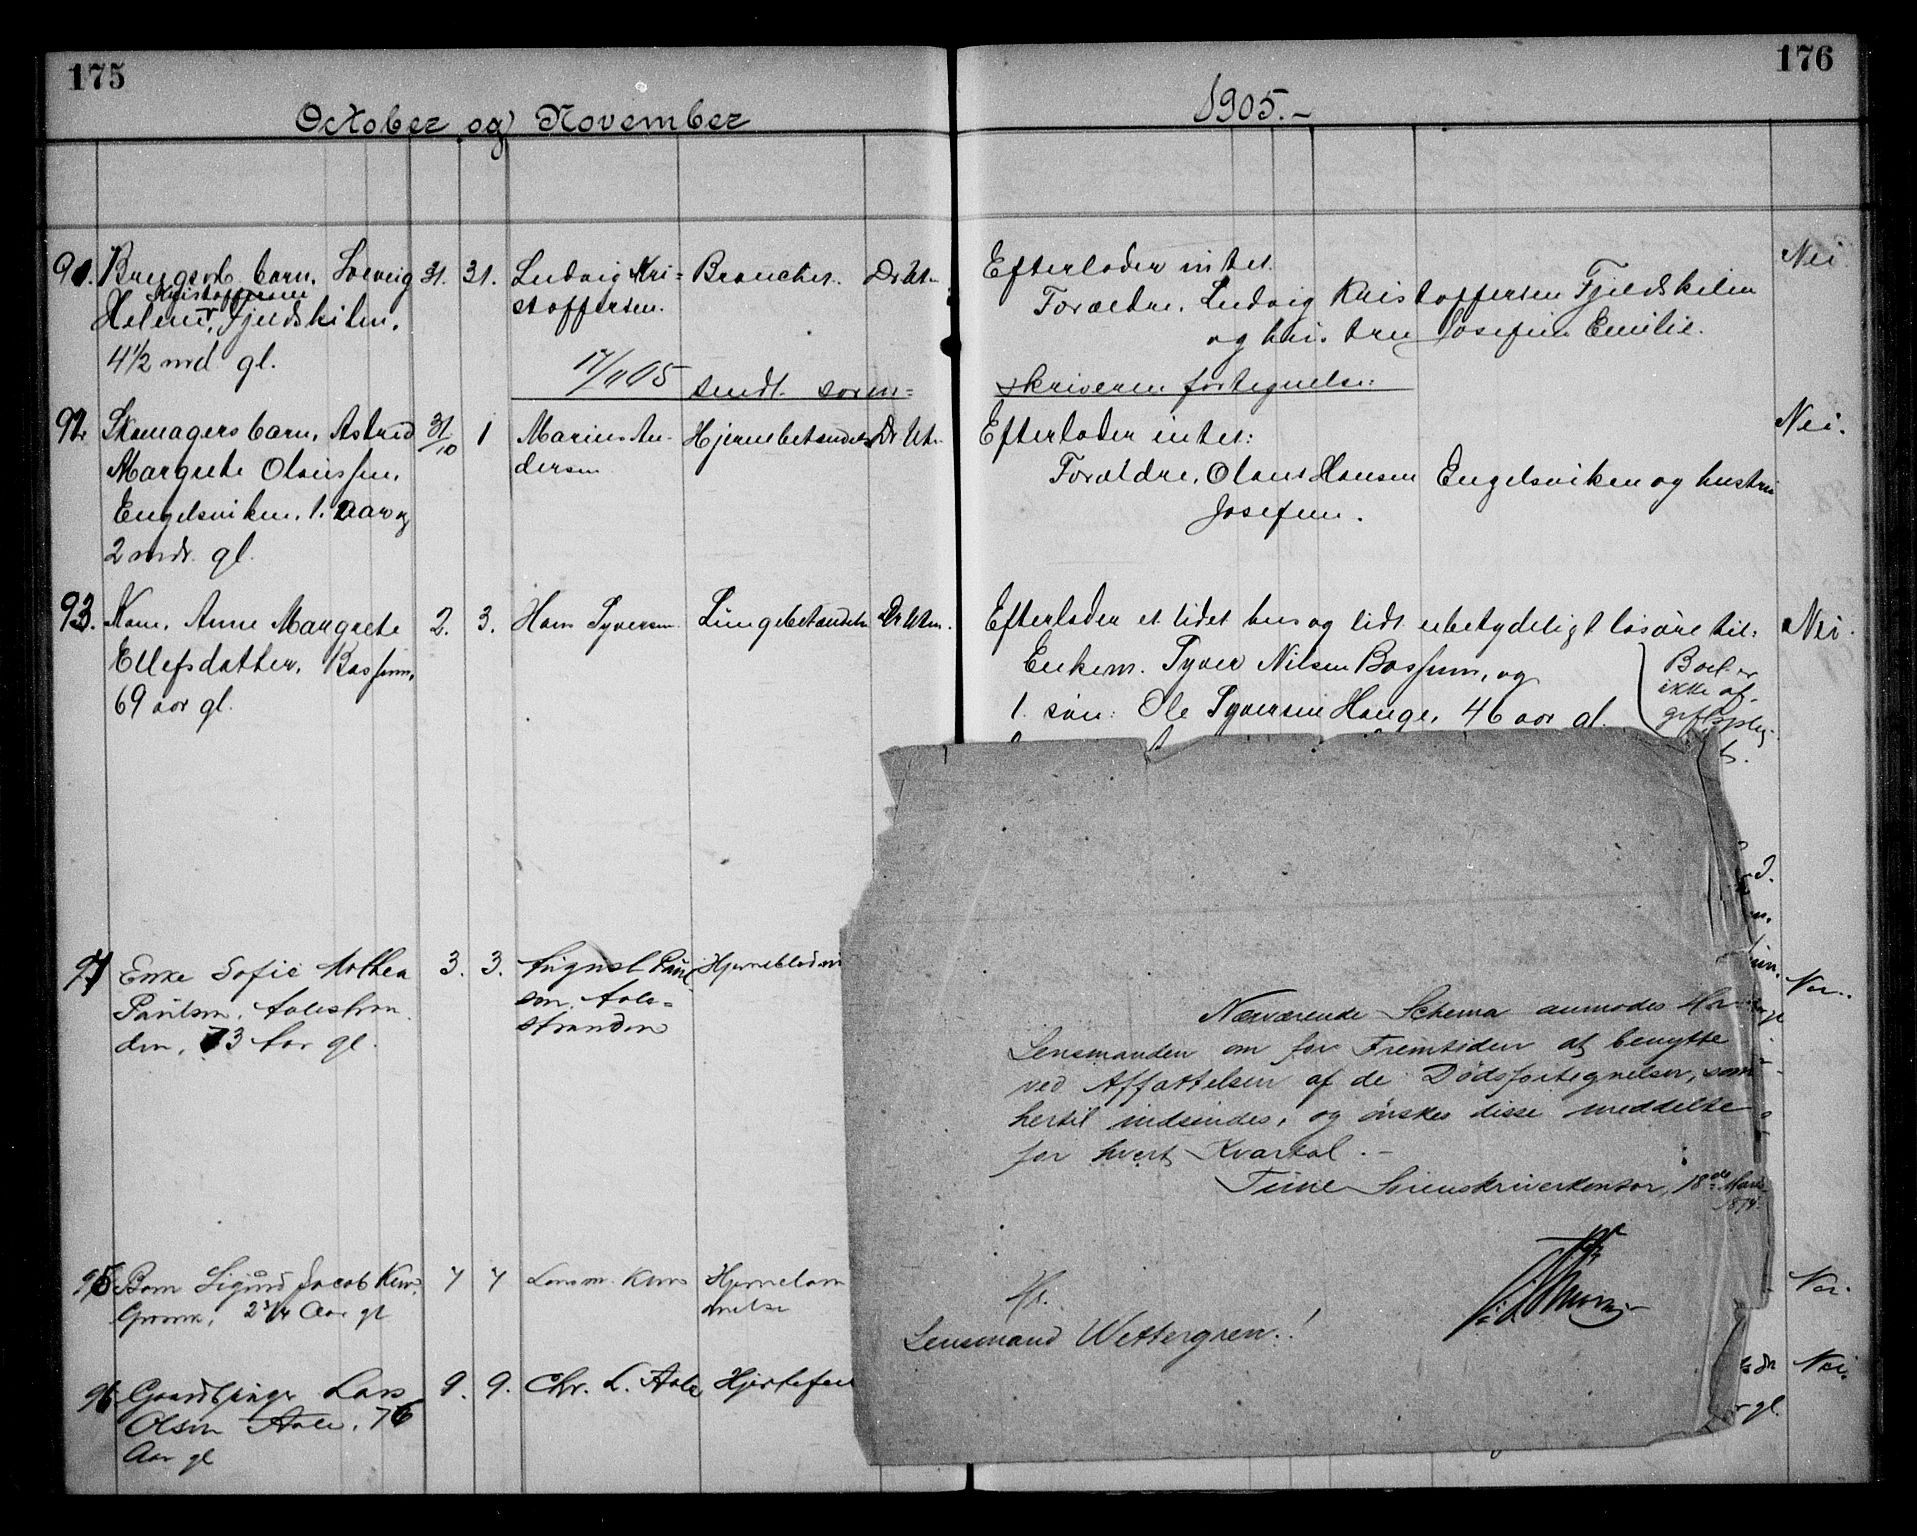 175
October og November
1905.-
176
91. Brugsb. barn, Solveig
Kristoffersen
Helene, Fjeldskilen.
4½ md gl.
31. 31. Ludvig Kri=
stoffersen.
Bronchit. Dr Utn
Efterlader intet.
Forældre, Ludvig Kristoffersen Fjeldskilen
og hustru Josefine Emilie.
Nei
17/11 05 sendt soren=
skriveren fortegnelse:
92. Skomagers barn, Astrid
Margrete Olaussen,
Engelsviken, 1. aar og
2 mdr. gl.
31/10 1 Marius An-
dersen
Hjernebetændelse Dr Utn
Efterlader intet:
Forældre, Olaus Hansen Engelsviken og hustru
Josefine.
Nei.
93. Kone, Anne Margrete
Ellefsdatter, Bossum,
69 aar gl.
2. 3. Hans Syversen Lungebetændelse Dr Utn.
Efterlader et lidet hus og lidt ubetydeligt løsøre til:
Enkem. Syver Nilsen Bossum, og
1. søn: Ole Syversen Hauge, 46 aar gl.
Boet er
ikke af-
giftsplig-
t.
Nei.
94 Enke Sofie Mathea
Paulsen, Aalestran
den, 73 Aar gl.
3. 3. August Paul
sen, Aale=
stranden
Hjerneblødn
Nei.
95 Barn Sigurd Jacob
2 3/4 Aar gl
7 7 Lensm.
Hjernelam
melse
Nei.
96 Gaardbruger Lars
Olsen Aale, 76
Aar gl
9. 9. Chr. L. Aale Hjertefeil
gl.
Nei.
Nærværende Schema anmodes Hr
Lensmanden om for Fremtiden at benytte
ved Affattelsen af de Dødsfortegnelser, som
hertil indsendes, og ønskes disse meddelte
for hvert Kvartal.-
Tune Sorenskriverkontor, 18de Marts
1874.
Hr.
Lensmand Wettergren!